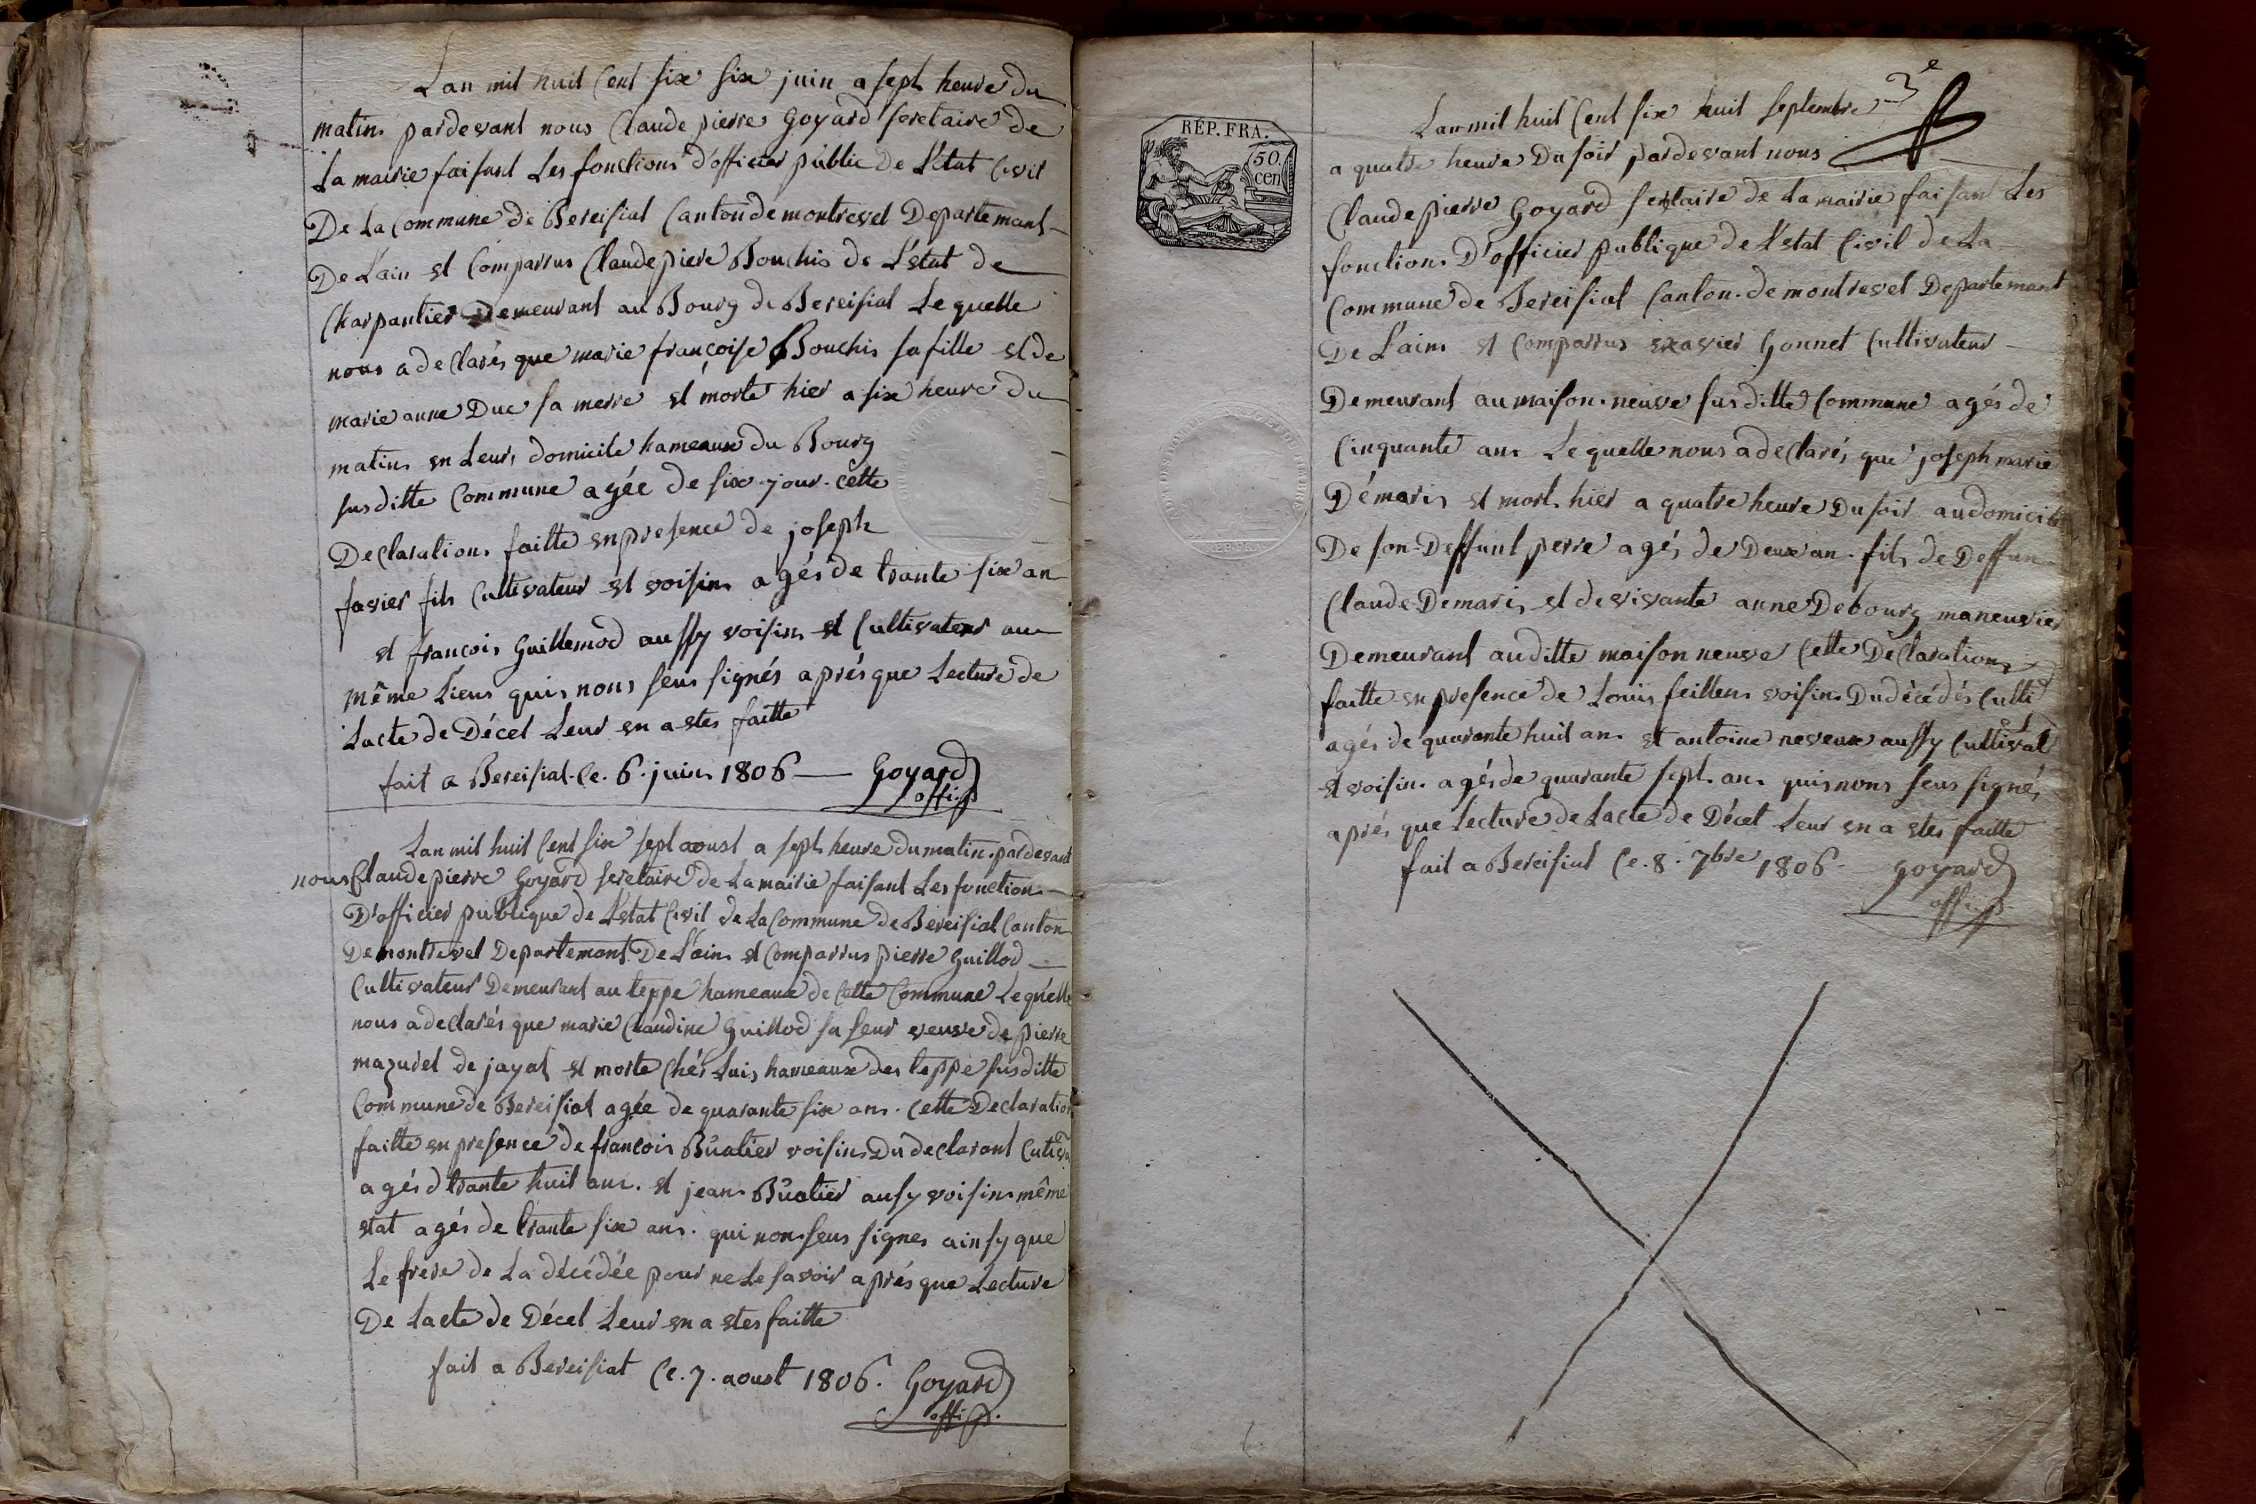 Lan mil huit Cent six six juin a sept heure du
matin pardevant nous Claude pierre Goyard secretaire de
La mairie faisant Les fonctions d'officier public De L'état Civil
De La Commune de Bereisiat Canton de montrevel Departemant
De L'ain et Comparrus Claude piere Bouchis de L'état de
Charpantier Demeurant au Bourg de Bereisiat Le quelle
nous a declarés que marie françoise Bouchis sa fille et de
marie anne Duc sa merre et morte hier a six heure du
matin en Leurs domicile hameaux du Bourg
susditte Commune agée de six jour. cette
Declaration faitte en presence de joseph
favier fils Cultivateur et voisin agés de trante six an
et françois Guillemod aussy voisin et Cultivateur au
même Lieux quis nous seus signés aprés que Lecture de
Lacte de Décet Leur en a etes faitte
fait a Bereisiat. Ce. 6. juin 1806 Goyard
offi. p
Lan mil huit Cent six sept aoust a sept heure du matin pardevant
nous Claude pierre Goyard secretaire de La mairie faisant Les fonction
D'officier publique de L'etat Civil de La Commune de Bereisiat Canton
De montrevel Departemant De L'ain et Comparrus pierre Guillod
Cultivateur Demeurant au teppe hameaux de Cette Commune Le quelle
nous a declarés que marie Claudine Guillod sa seur veuve de pierre
mazudet de jayat et morte Chés Luis hameaux des teppe susditte
Commune de Bereisiat agée de quarante six ans. Cette Declaration
faitte en presence de francois Buatier voisin Du declarant Cutiva
agés d trante huit ans. et jean Buatier aussy voisin même
etat agés de trante six ans. qui non seus signes ainsy que
Le frere de La décédée pour ne Le savoir aprés que Lecture
De Lacte de Décet Leur en a etes faitte
fait a Bereisiat Ce. 7. aoust 1806. Goyard
offi. p.
3e
REP. FRA.
50. cen
Lan mil huit Cent six huit septembre
a quatre heure Du soir pardevant nous
Claude pierre Goyard sectaire de La mairie faisan Les
fonction D'officier publique de L'etat Civil de La
Commune de Bereisiat Canton de montrevel Departemant
De L'ain et Comparrus exavier Gonnet Cultivateur
Demeurant au maison neuve susditte Commune agés de
Cinquante an Le quelle nous a declarés que joseph marie
Démaris et mort hier a quatre heure Du soir au domicile
De son Deffunt perre agés de Deux an fils de Deffun
Claude Demaris et de vivante anne Debourg maneuvier
Demeurant auditte maison neuve Cette Declaration
faitte en presence de Louis feillens voisin Du décédés Culti
agés de quarante huit an et antoine neveux aussy Cultivat
et voisin agés de quarante sept an quis nons seus signés
aprés que Lecture de Lacte de Décet Leur en a etes faitte
fait a Bereisiat Ce. 8. 7bre 1806 Goyard
offi. p